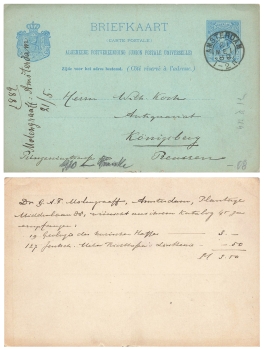 BRIEFKAART
(CARTE POSTALE)
ALGEMEENE POSTVEREENIGING (UNION POSTALE UNIVERSELLE)
Zijde voor het adres bestemd. (Côté réservé à l'adresse.)
AMSTERDAM
Herrn Wilh. Koch
Antiquariat
Königsberg
Preussen
1889
21/5
Molengraaff. Amsterdam
Dr G. A. F. Molengraaff, Amsterdam, Plantage
Middenlaan 88, wünscht aus ihrem Katalog 45 zu
empfangen:
19 Geologie des Kurischen Haffes — 3. —
127 Jentzsch. — .50
M 3.50